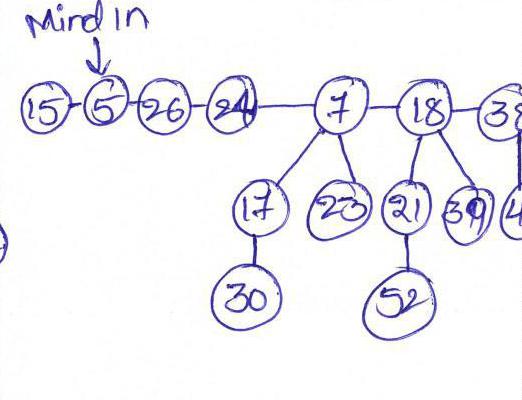 Mind In
15 5 26 24 7 18
17 23 21 39
30 52